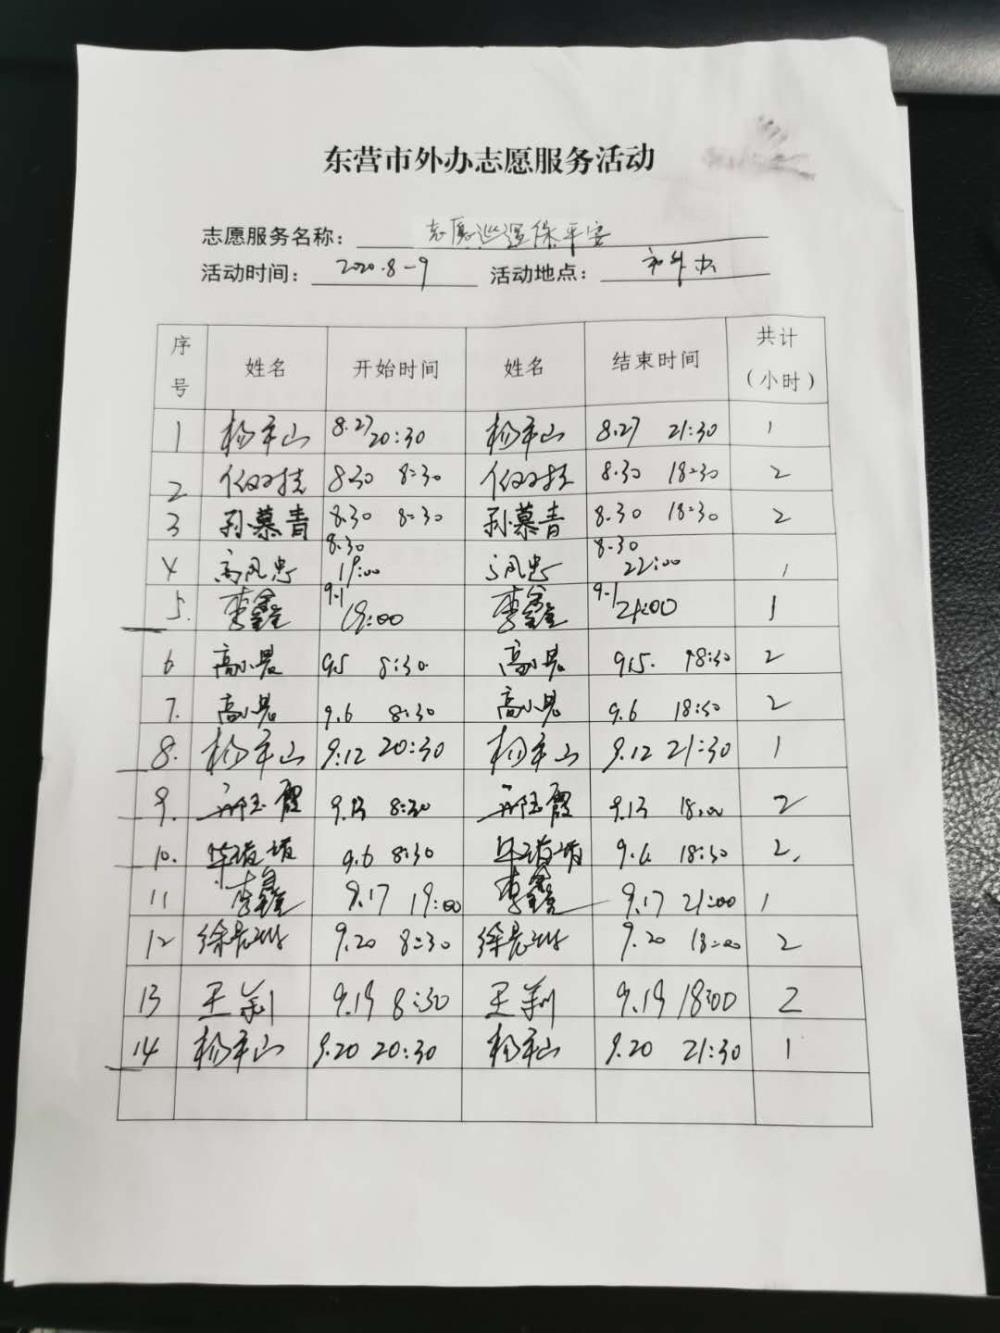 东营市外办志愿服务活动
志愿服务名称： 志愿巡逻保平安
活动时间： 2020.8-9 活动地点： 市外办
序号 姓名 开始时间 姓名 结束时间 共计（小时）
1 杨平山 8.27 20:30 杨平山 8.27 21:30 1
2 8.30 8:30 8.30 18:30 2
3 孙慕青 8.30 8:30 孙慕青 8.30 18:30 2
4 高风忠 8.30 19:00 高风忠 8.30 22:00 1
5. 李鑫 9.1 19:00 李鑫 9.1 21:00 1
6 高小晃 9.5 8:30. 高小晃 9.5. 18:30 2
7. 高小晃 9.6 8:30 高小晃 9.6 18:30 2
8. 杨平山 9.12 20:30 杨平山 9.12 21:30 1
9. 9.13 8:30 9.13 18:00 2
10. 9.6 8:30 9.6 18:30 2.
11 李鑫 9.17 19:00 李鑫 9.17 21:00 1
12 9.20 8:30 9.20 18:00 2
13 王莉 9.19 8:30 王莉 9.19 18:00 2
14 杨平山 9.20 20:30 杨平山 9.20 21:30 1